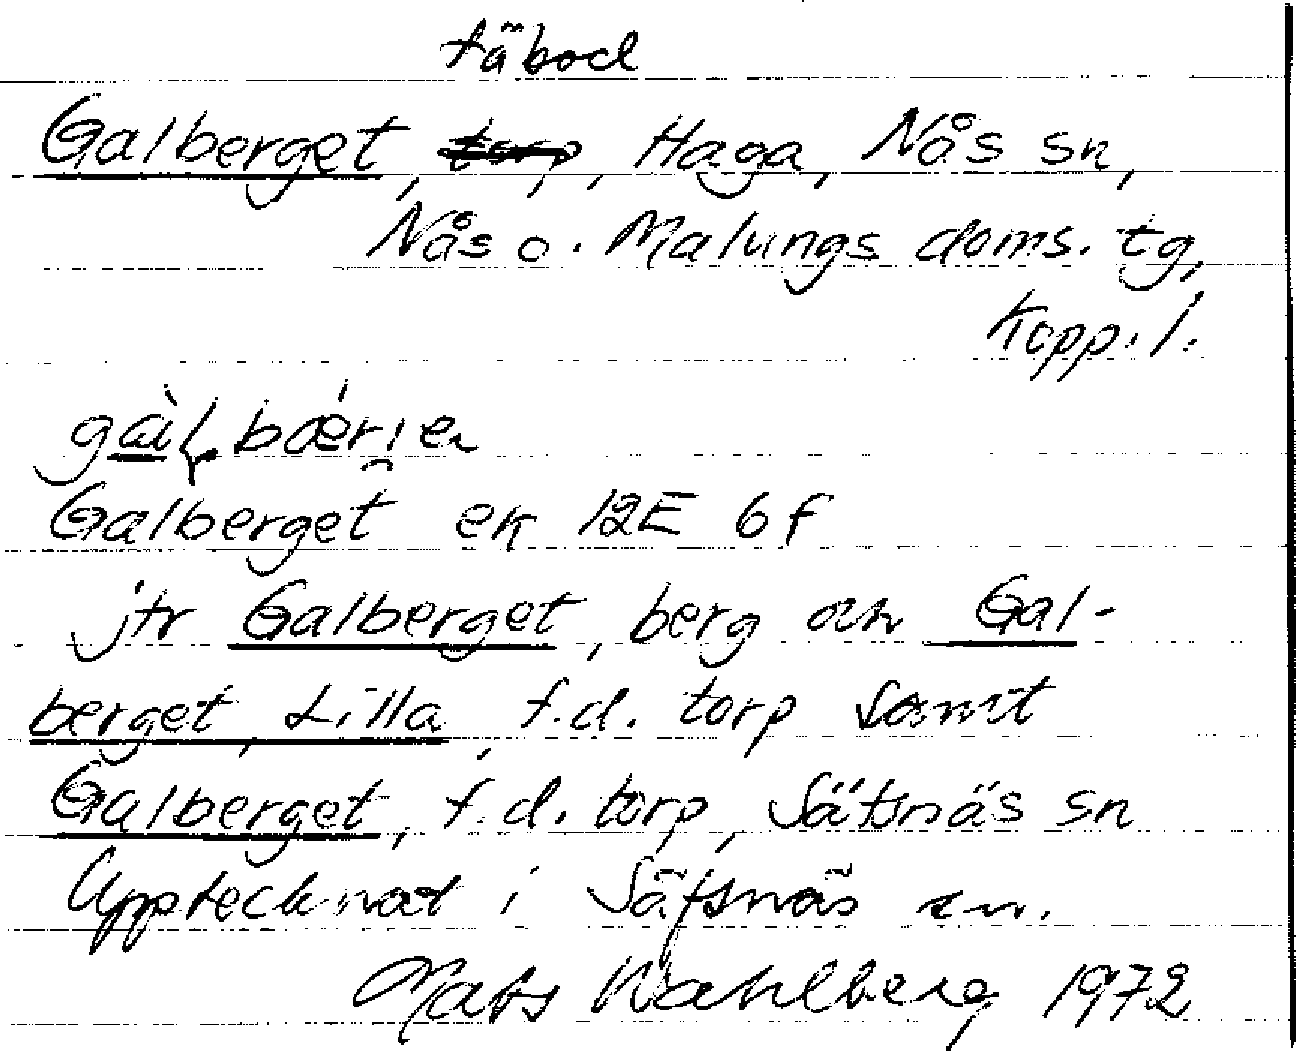 fäbod
Galberget, torp, Haga, Nås sn,
Nås o. Malungs doms. tg,
Kopp. l.
Galberget ek 12E 6f
jfr Galberget, berg och Gal-
berget, Lilla, f.d. torp samt
Galberget, f.d. torp, Säfsnäs sn
Upptecknat i Säfsnäs sn.
Mats Wahlberg 1972